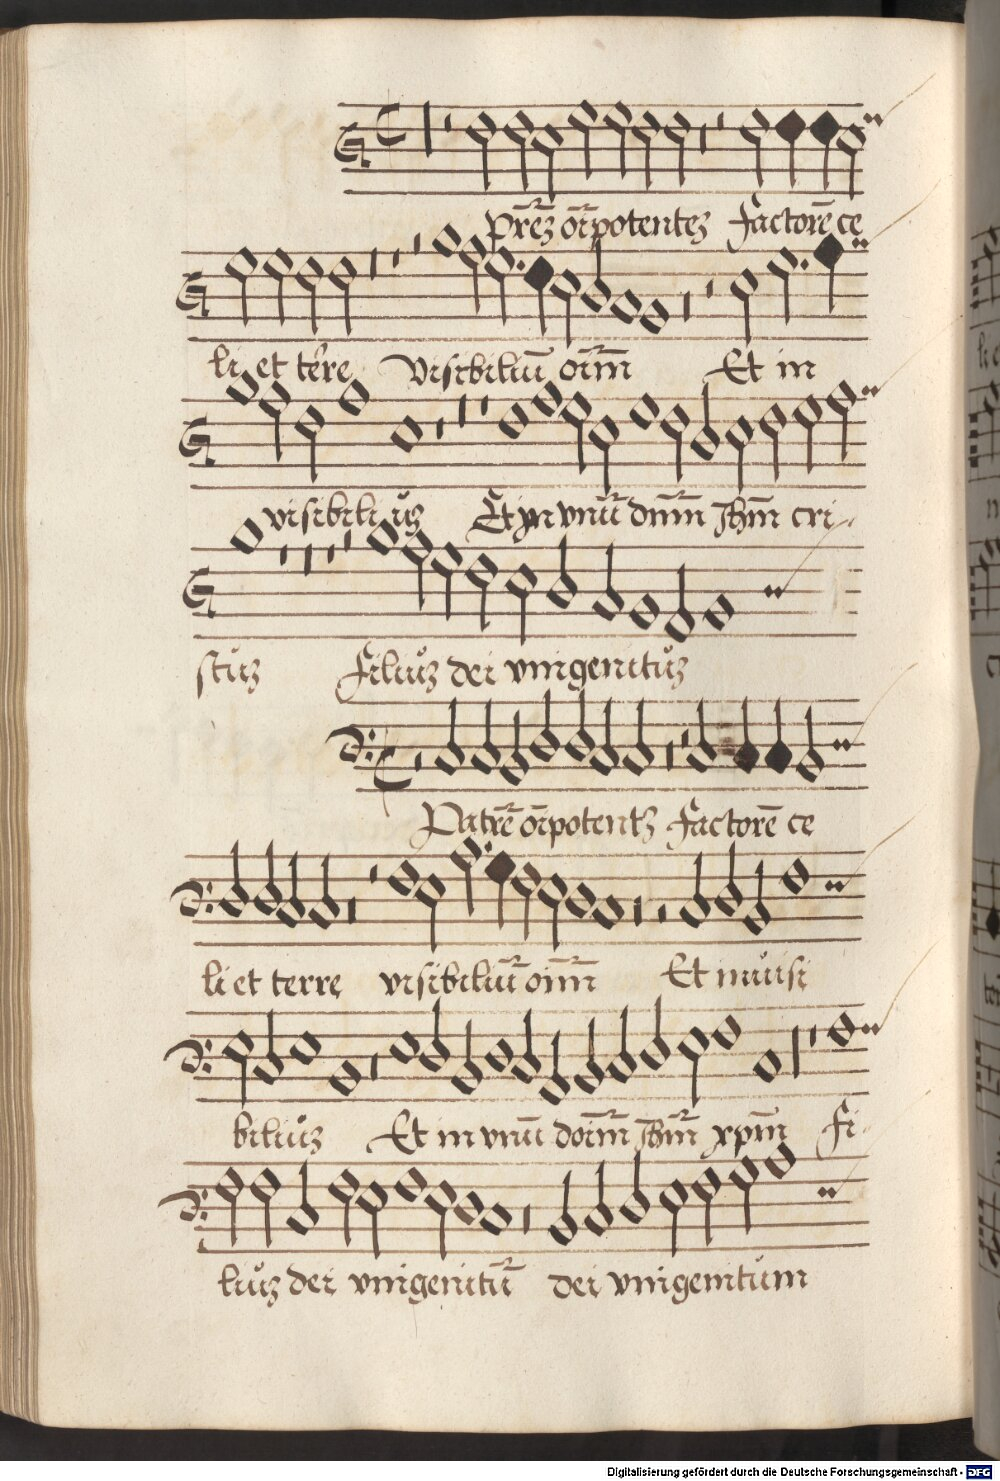 Pr̅e̅ꝫ oi̅potenteꝫ factore̅ ce
li et te̅re visibiliu̅ oi̅m̅ Et in
visibiliůꝫ Et yn vnu̅ dn̅m̅ Jh̅m̅ cri
stůꝫ filiůꝫ dei vnigenitůꝫ
Patre̅ oi̅potentꝫ factore̅ ce
li et terre visibiliu̅ oi̅m̅ Et inůisi
biliůꝫ Et in vnu̅ doi̅m̅ Jh̅m̅ xpm̅ fi
liůꝫ dei vnigenitu̅ dei vnigenitům
Digitalisierung gefördert durch die Deutsche Forschungsgemeinschaft - DFG